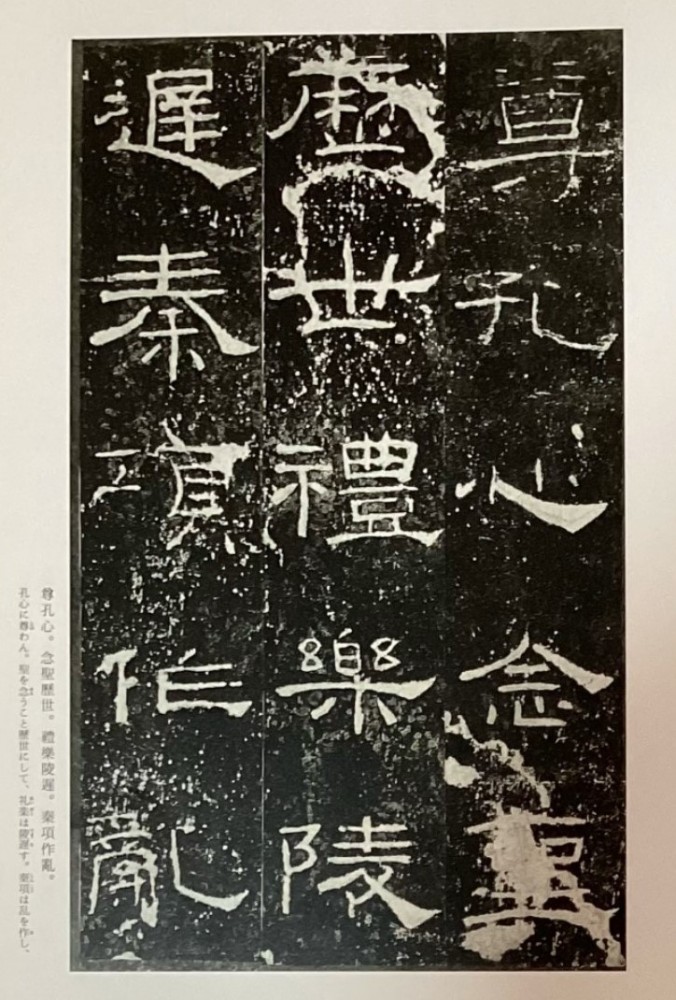 尊孔心念聖
歷世禮樂陵
遲秦項作亂
尊孔心。念聖歷世。禮樂陵遲。秦項作亂。
孔心に尊わん。聖を念うこと歷世にして、礼楽は陵遅す。秦項は乱を作し、